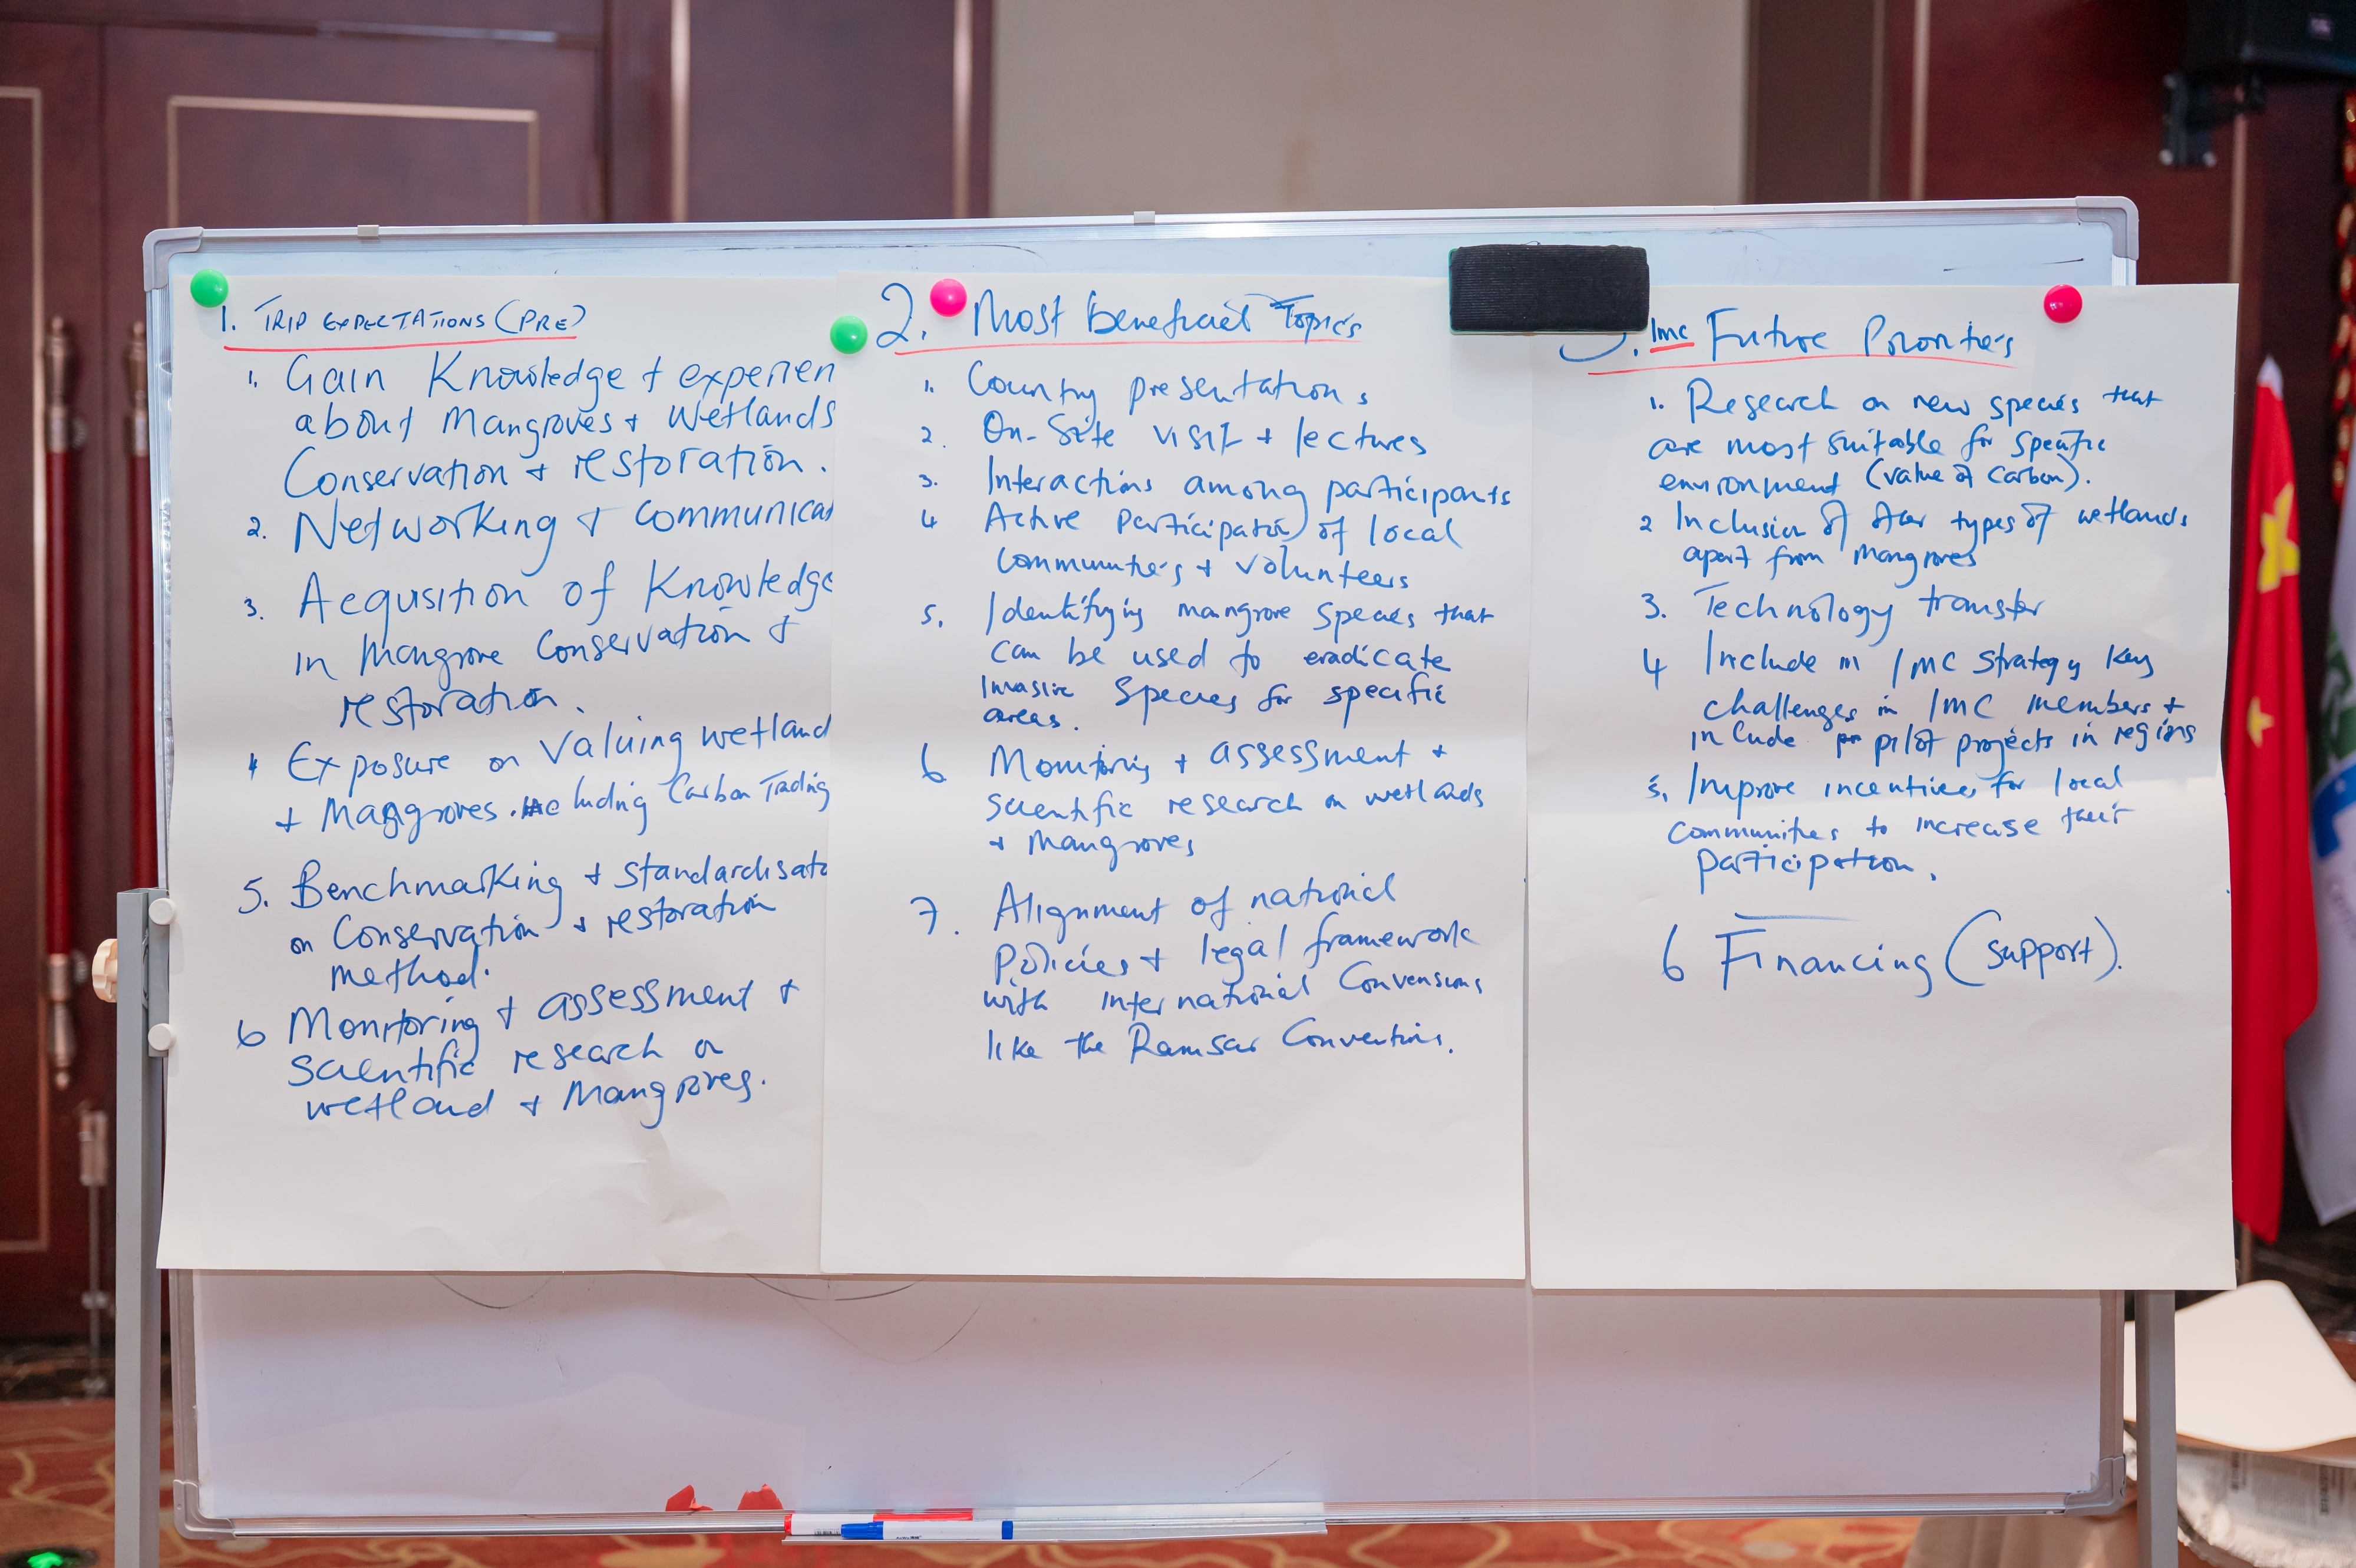 1. TRIP EXPECTATIONS (PRE)
1. Gain Knowledge + experien
about Mangroves + Wetlands
Conservation + restoration.
2. Networking + Communicat
3. Acqusition of Knowledge
in Mangrove Conservation +
restoration.
4 Exposure on Valuing wetland
+ Mangroves. including Carbon Trading
5. Benchmarking + Standardisato
on Conservation + restoration
method.
6 Monitoring + assessment +
Scientific research on
wetland + Mangroves.
2. Most beneficial Topics
1. Country presentations
2. On-Site visit + lectures
3. Interactions among participants
4 Active Participation of local
Communities + Volunteers
5. Identifying mangrove Species that
can be used to eradicate
Invasive Species for specific
areas.
6 Monitoring + assessment +
scientific research on wetlands
+ Mangroves
7. Alignment of national
Policies + legal framework
with international Convensions
like the Ramsar Conventions.
. IMC Future Priorities
1. Research on new species that
are most suitable for specific
environment (value of carbon).
2 Inclusion of other types of wetlands
apart from Mangroves
3. Technology transfer
4 Include in IMC strategy key
challenges in IMC members +
include pilot projects in regions
5. Improve incentives for local
communities to increase their
participation.
6 Financing (support).